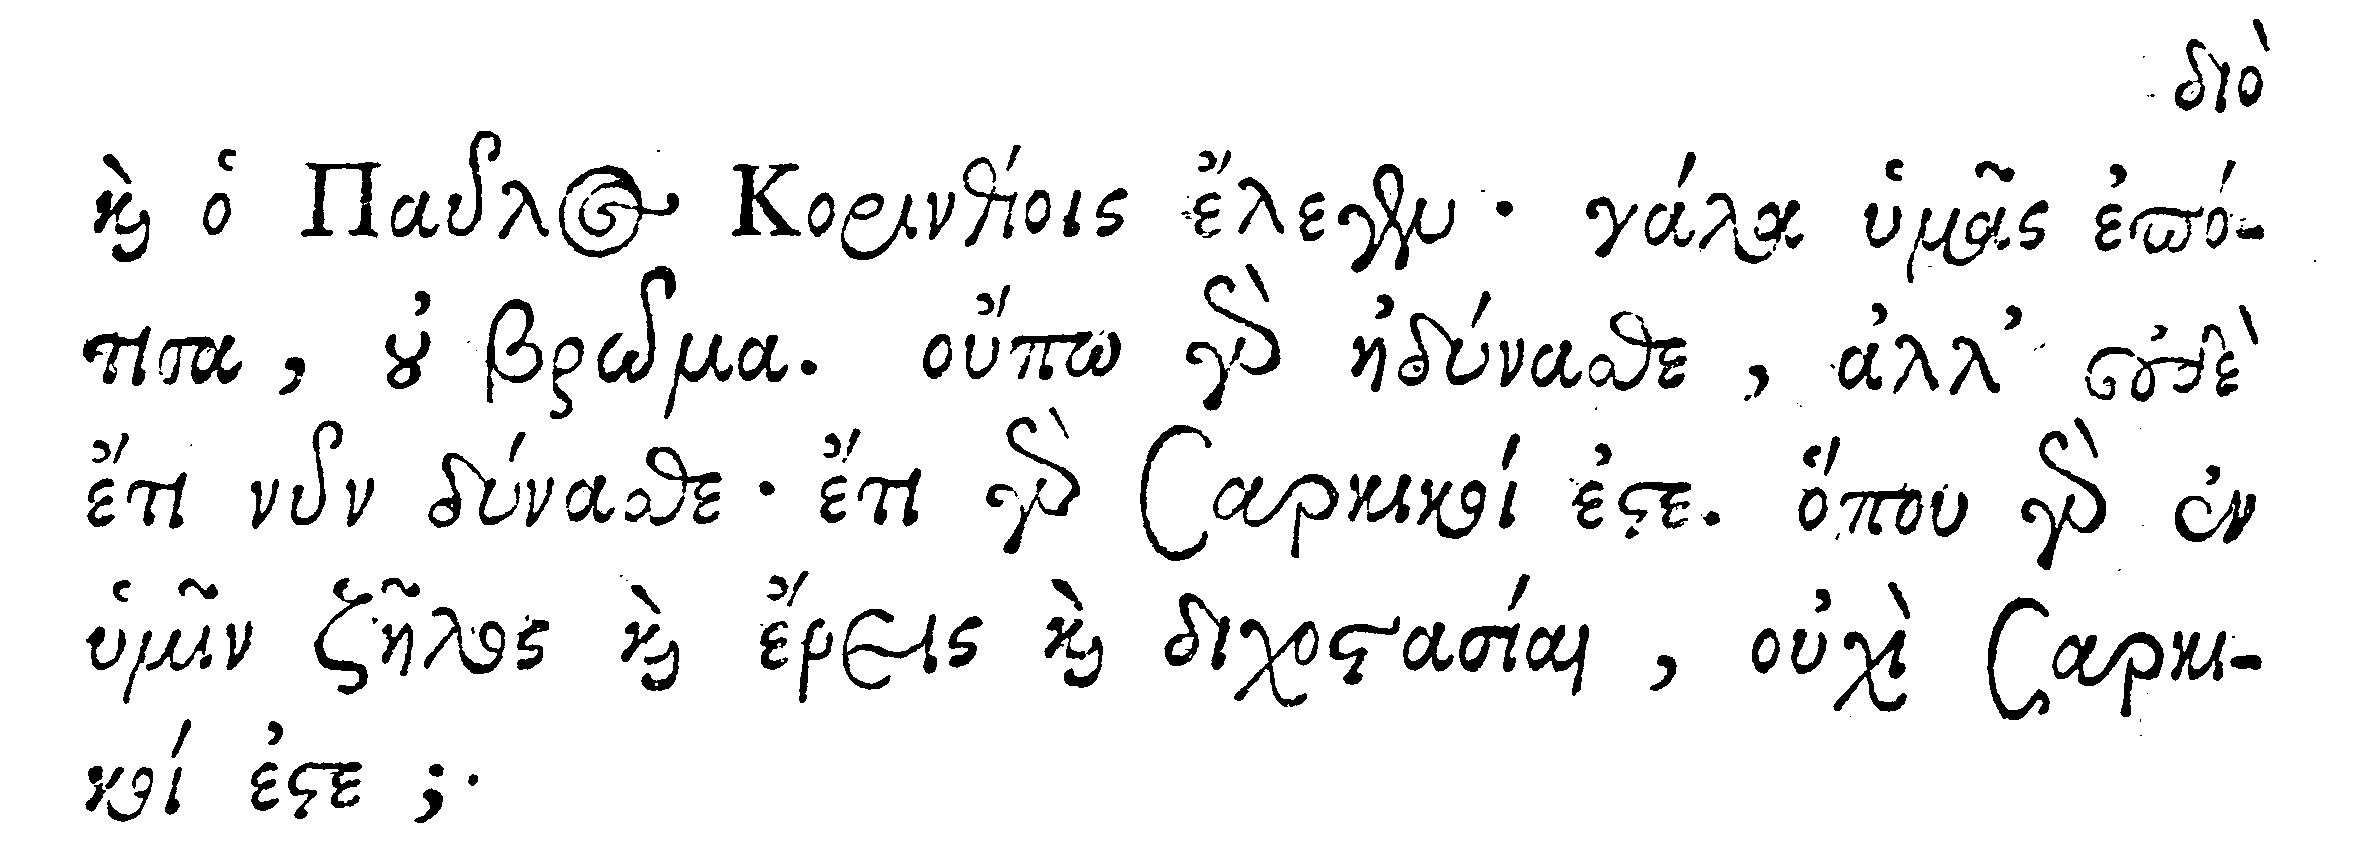 διὸ
καὶ ὁ Παῦλος Κορινθίοις ἔλεγεν· γάλα ὑμᾶς ἐπό-
τισα, οὐ βρῶμα. οὔπω γὰρ ἠδύνασθε, ἀλλ’ οὐδὲ
ἔτι νῦν δύνασθε· ἔτι γὰρ σαρκικοί ἐστε. ὅπου γὰρ ἐν
ὑμῖν ζῆλος καὶ ἔρεις καὶ διχοστασίαι, οὐχὶ σαρκι-
κοί ἐστε;·